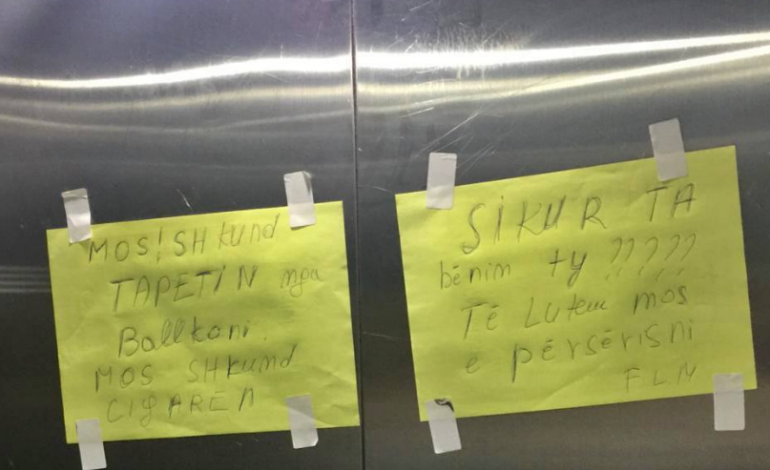 MOS! SHkund
TAPETIN nga
Ballkoni.
MOS SHkund
CIgARËN
SIKUR TA
bënim ty ?????
Të Lutem mos
e përsërisni
FLN